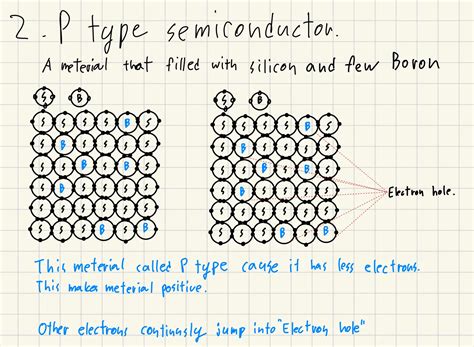 2. P type semiconductor.
A meterial that filled with silicon and few Boron
S B S B
S S S S B S S S S S B S
S B S S S S S B S S S S
S S B S B S S S B S B S
S B S S S S S B S S S S
S S S S S S S S S S S S
S S S B S B S S S B S B
Electron hole.
This meterial called P type cause it has less electrons.
This makes meterial positive.
Other electrons continusly jump into "Electron hole"